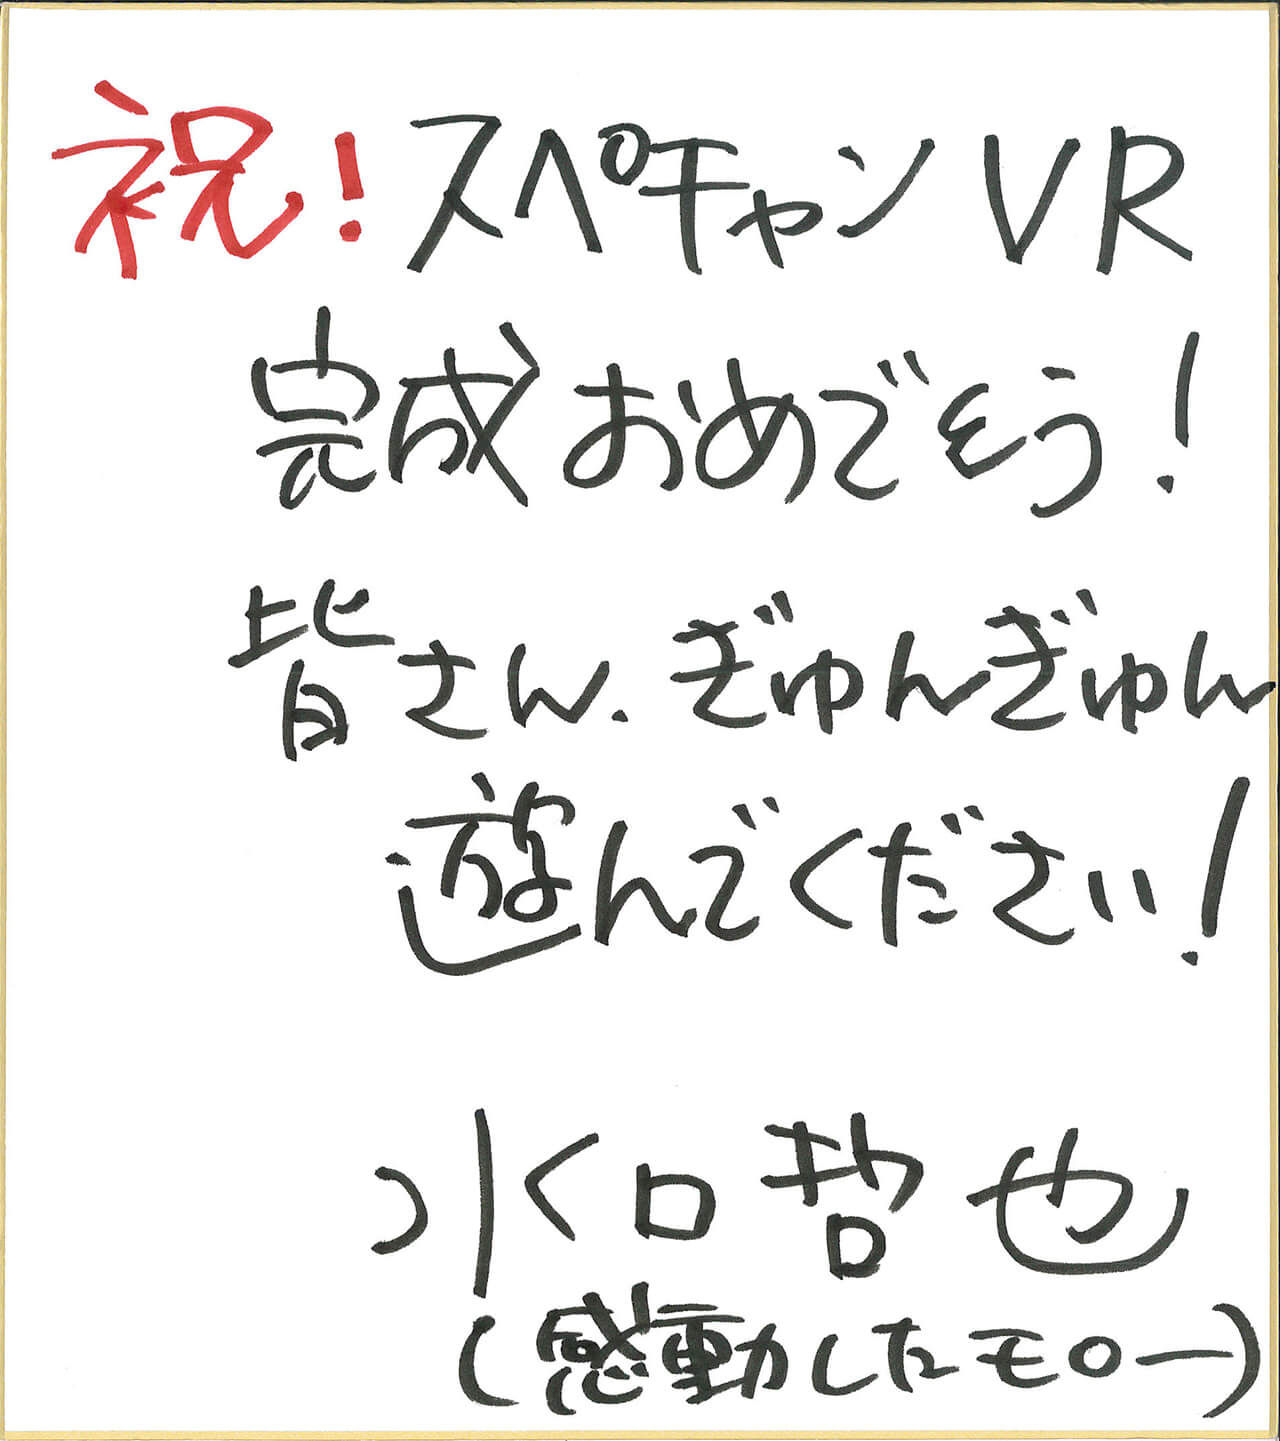 祝!スペチャンVR
完成おめでとう!
皆さん.ぎゅんぎゅん
遊んでください!
水口哲也
(感動したモロー)